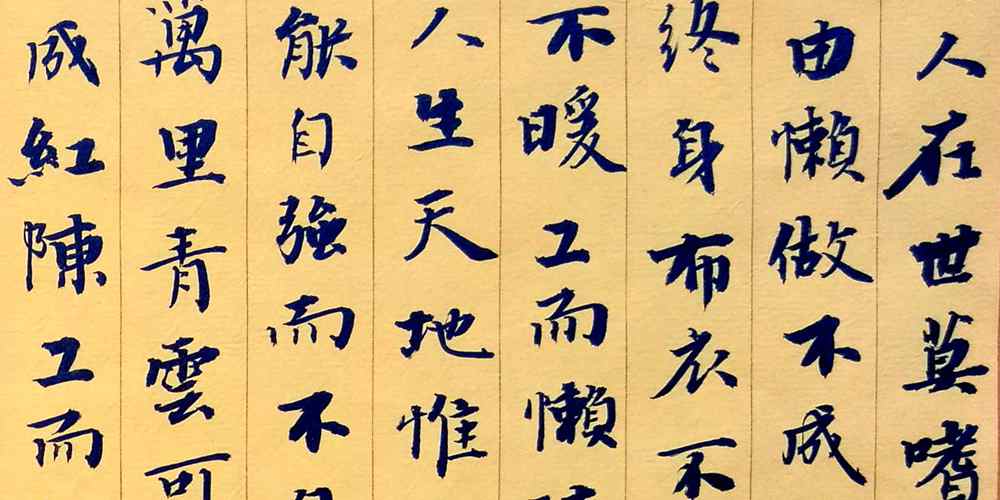 人在世莫嗜
由懶做不成
終身布衣不
不暖工而懶
人生天地惟
能自強而不
萬里青雲可
成紅陳工而